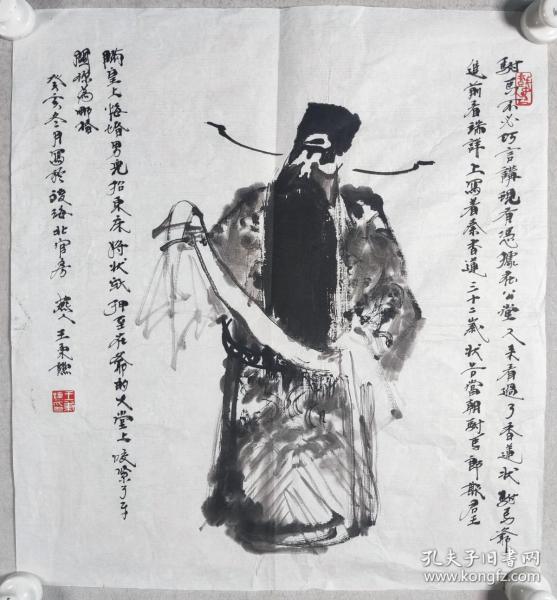 驸马不必巧言讲现有凭据在公堂人来看过了香莲状驸马爷
近前看端详上写着秦香莲三十二岁状告当朝驸马郎欺君王
瞒皇上悔婚男儿招东床将状纸押至在爷的大堂上咬紧了牙
关你为哪桩
癸亥冬月写于
北官房 燕人王秉
孔夫子旧书网